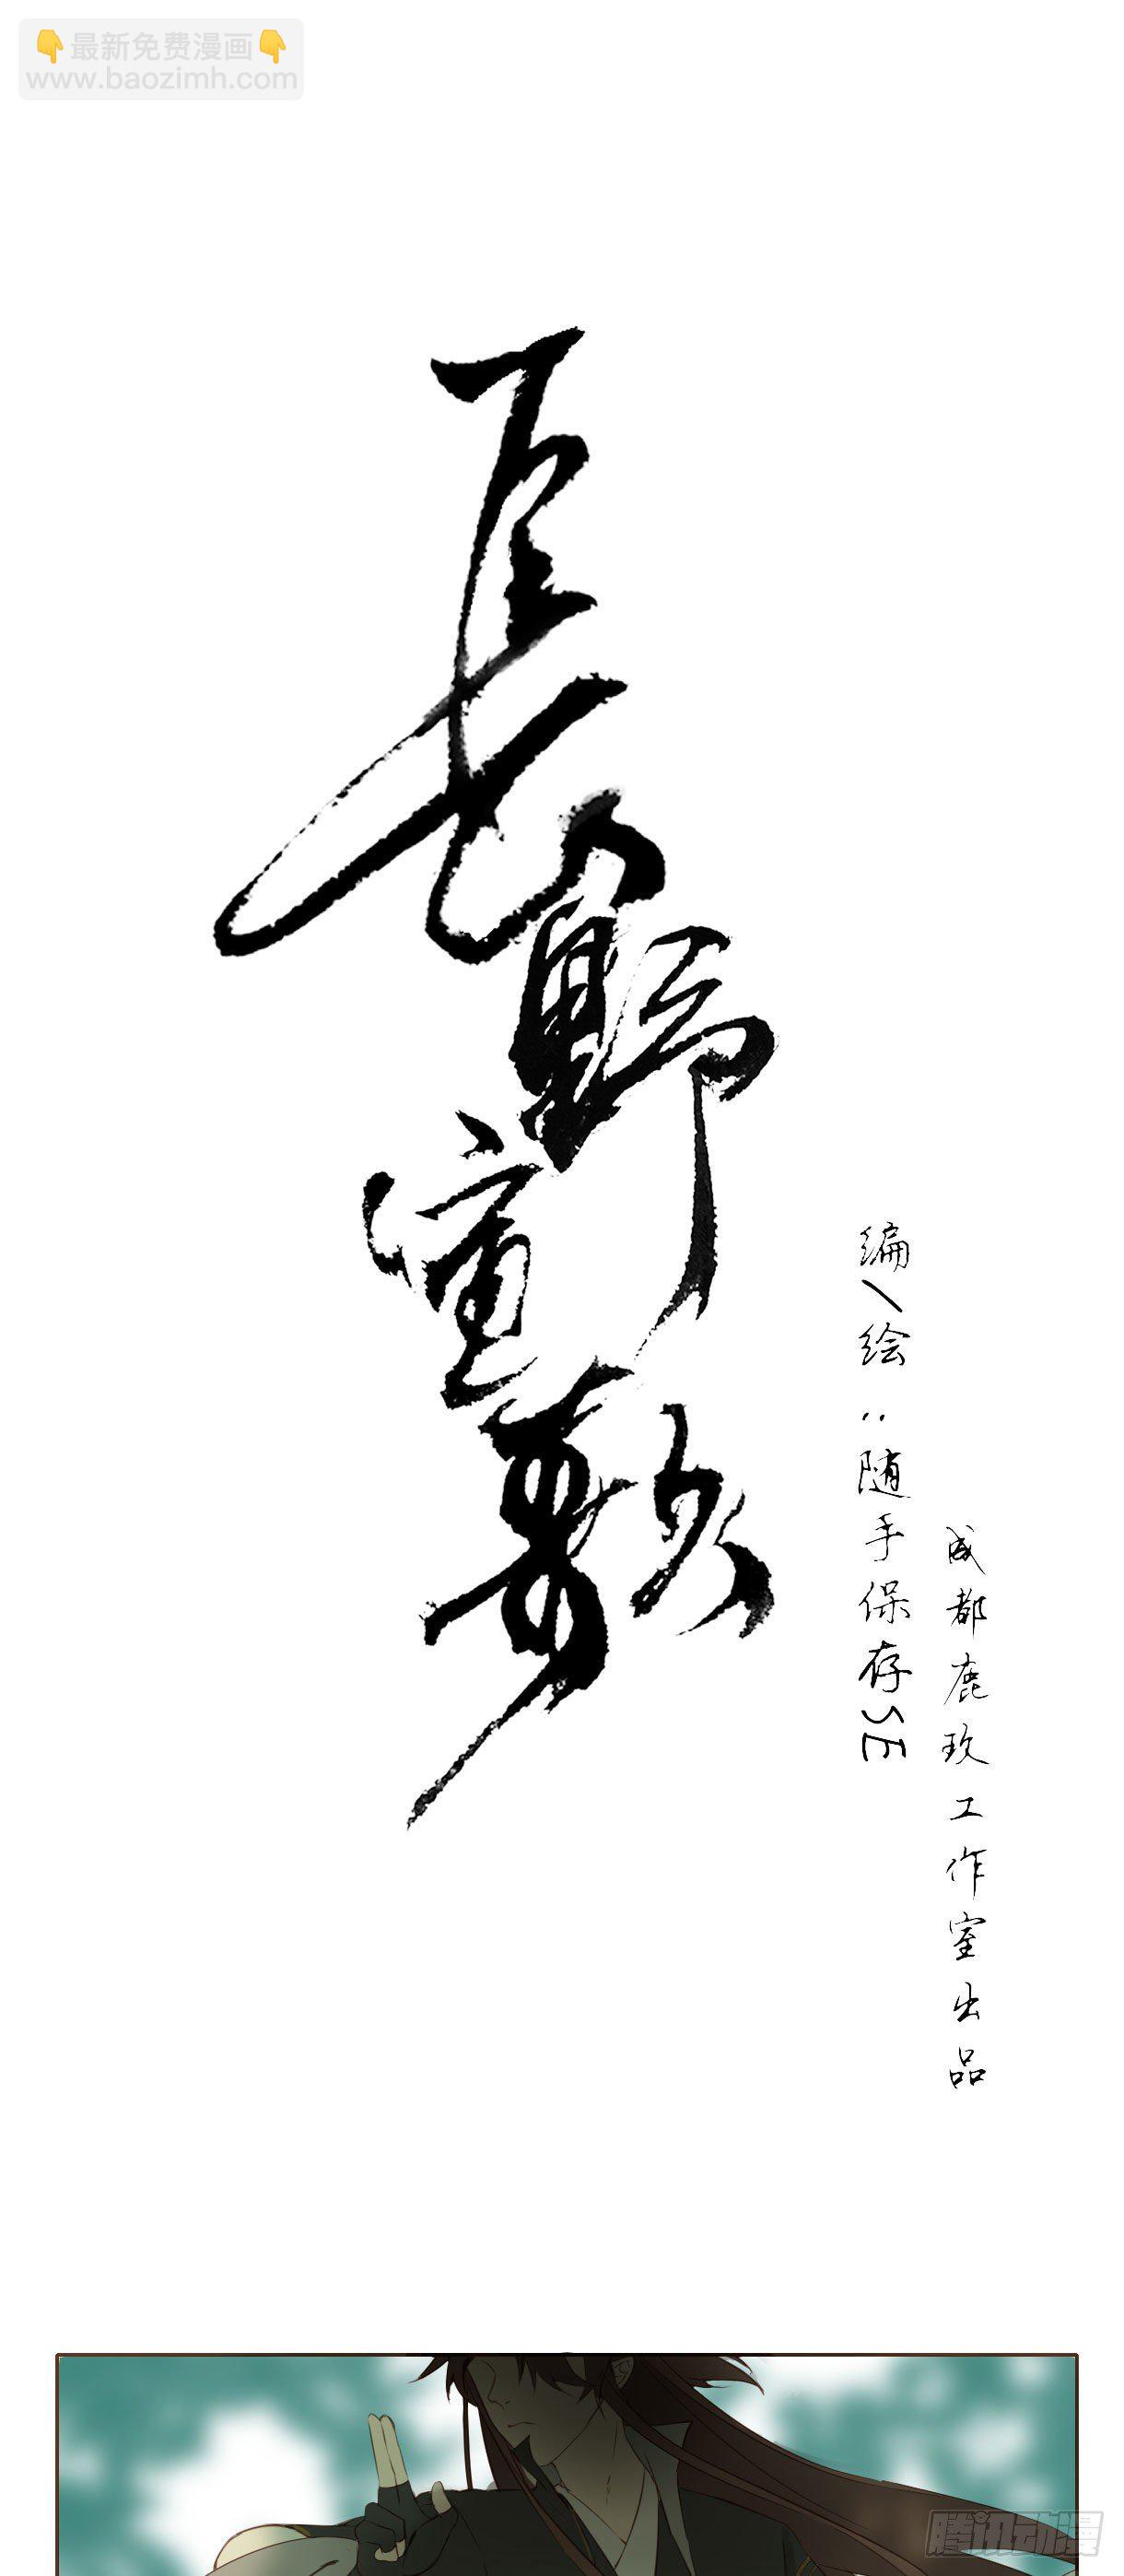 👇最新免费漫画👇
www.baozimh.com
長野宣敷
编/绘:随手保存SE
成都鹿玖工作室出品
腾讯动漫